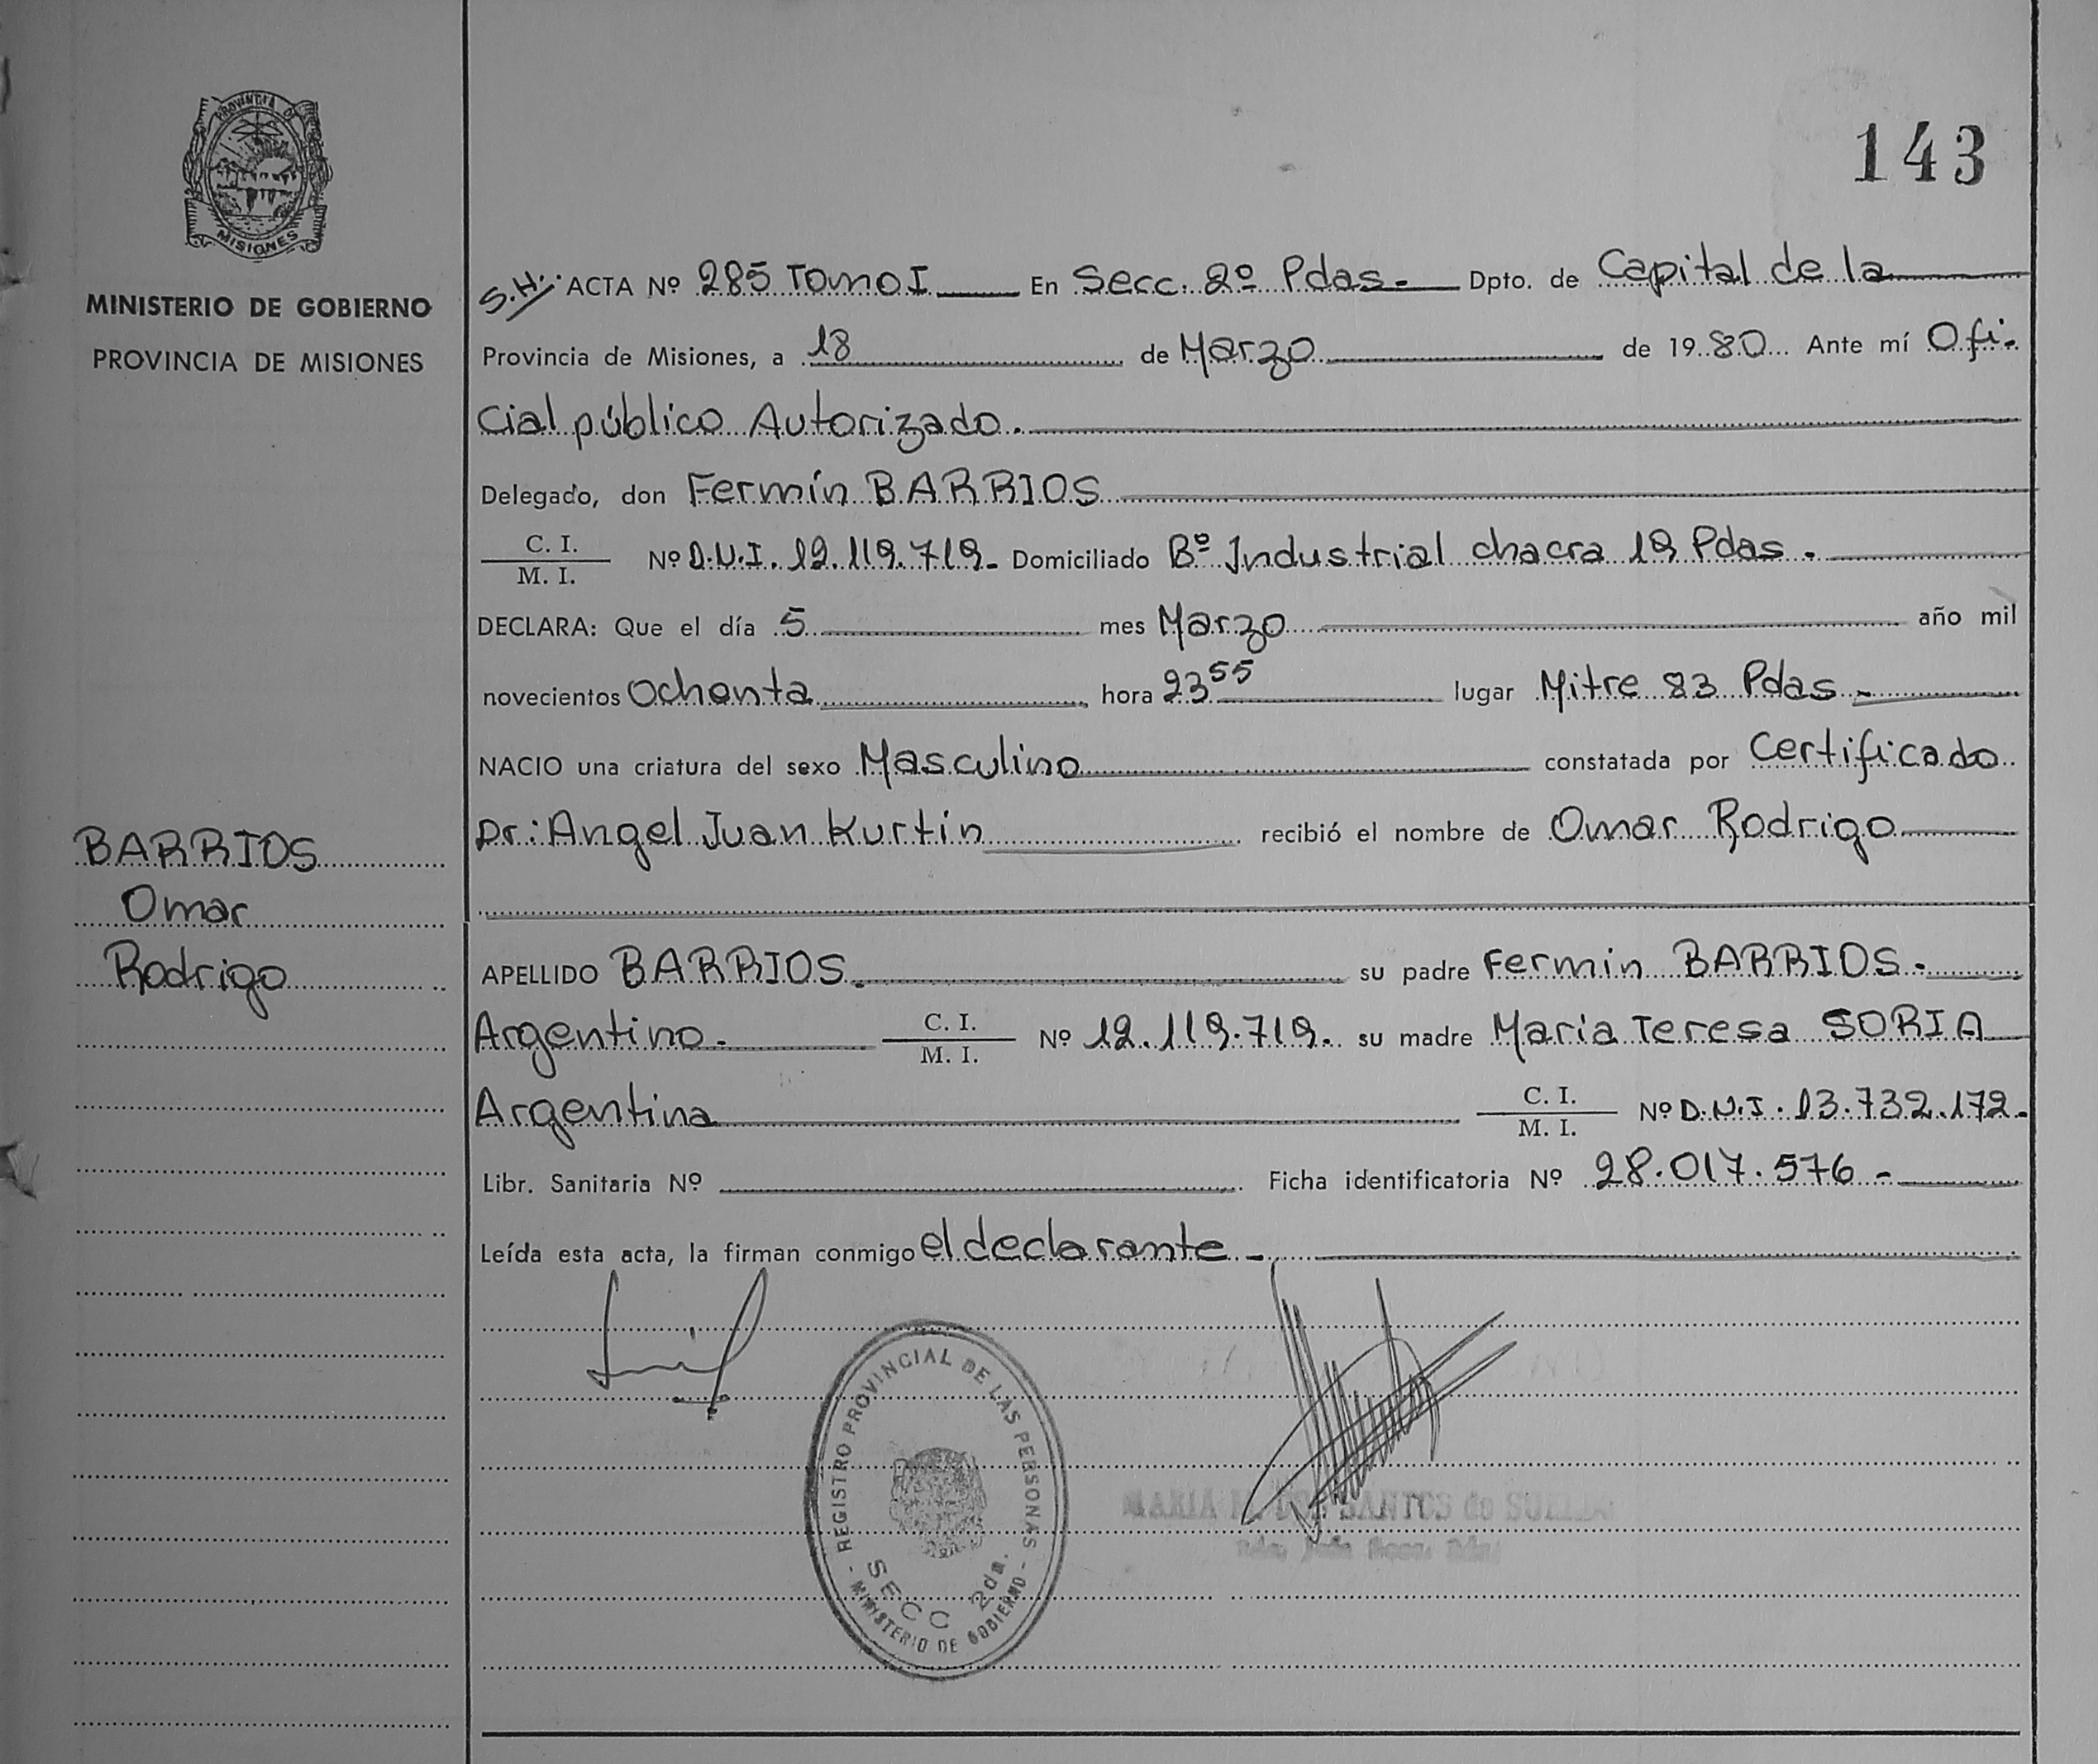 PROVINCIA DE
MISIONES
MINISTERIO DE GOBIERNO
PROVINCIA DE MISIONES
BARRIOS
Omar
Rodrigo
143
S.H. ACTA Nº 285 Tomo I En Secc. 2º Pdas. Dpto. de Capital de la
Provincia de Misiones, a 18 de Marzo de 1980 Ante mí Ofi-
cial público Autorizado.
Delegado, don Fermín BARRIOS
C. I.
M. I.
Nº D.N.I. 12.119.719. Domiciliado Bº Industrial chacra 19 Pdas.
DECLARA: Que el día 5 mes Marzo año mil
novecientos Ochenta hora 23 55 lugar Mitre 83 Pdas.
NACIO una criatura del sexo Masculino constatada por Certificado
Dr: Angel Juan Kurtin recibió el nombre de Omar Rodrigo
APELLIDO BARRIOS. su padre Fermin BARRIOS.
Argentino. C. I. M. I. Nº 12.119.719. su madre Maria Teresa SORIA
Argentina C. I. M. I. Nº D.N.I. 13.732.172.
Libr. Sanitaria Nº Ficha identificatoria Nº 28.017.576 -
Leída esta acta, la firman conmigo el declarante -
REGISTRO PROVINCIAL DE LAS PERSONAS
SECC 2da.
- MINISTERIO DE GOBIERNO -
MARIA SANTOS de